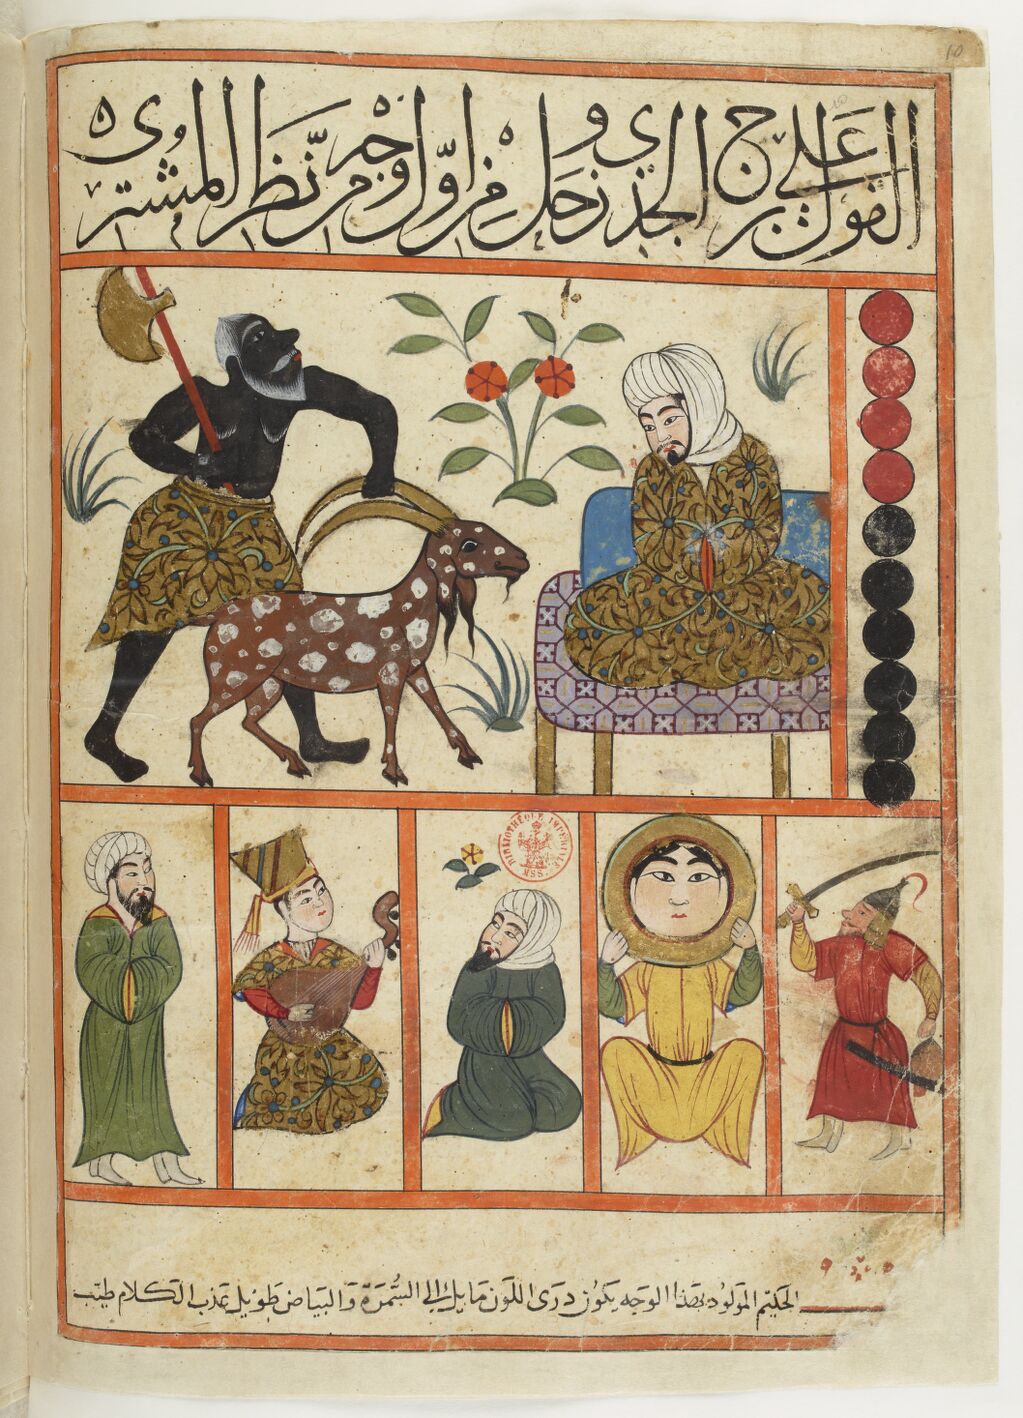 10
القول على برج الجدي وزحل في أول وجه من نظر المشتري
BIBLIOTHÈQUE IMPÉRIALE MSS
الحكيم المولود بهذا الوجه يكون دري اللون مايل الى السمرة والبياض طويل عذب الكلام طيب